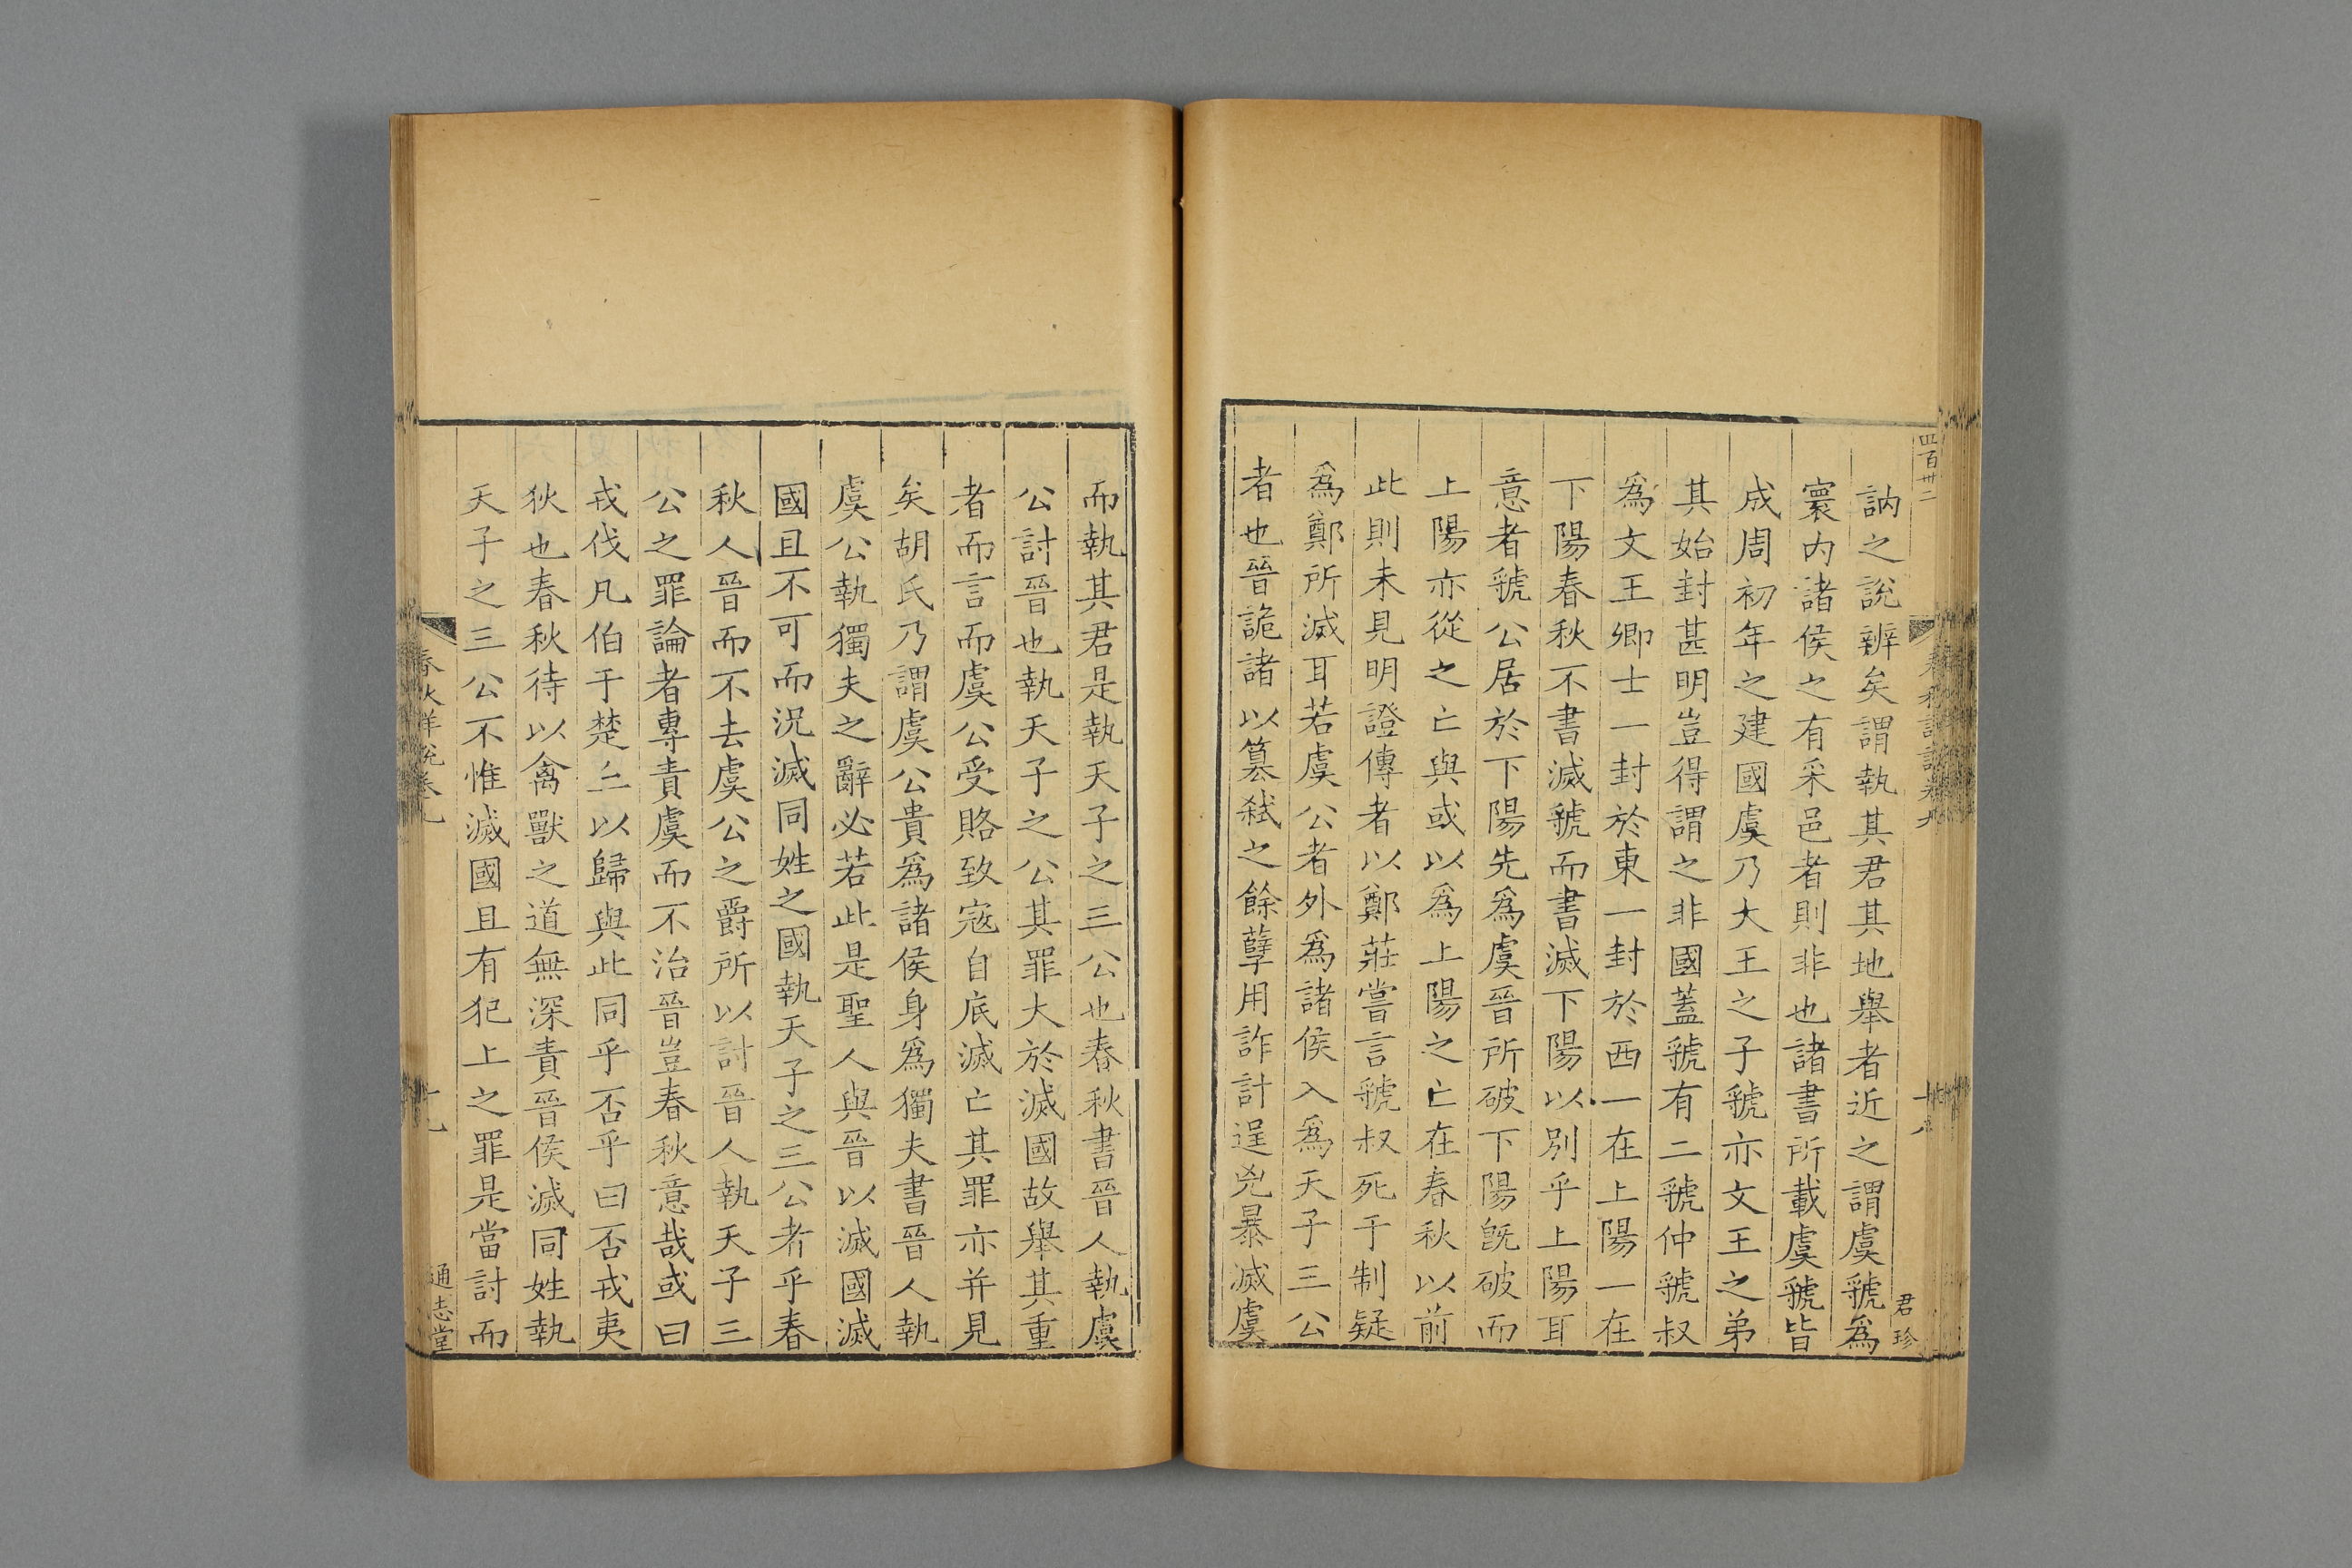 四百卅二
訥之說辨矣謂執其君其地舉者近之謂虞虢為
寰内諸侯之有采邑者則非也諸書所載虞虢皆
成周初年之建國虞乃大王之子虢亦文王之弟
其始封甚明豈得謂之非國蓋虢有二虢仲虢叔
為文王卿士一封於東一封於西一在上陽一在
下陽春秋不書滅虢而書滅下陽以別乎上陽耳
意者虢公居於下陽先為虞晉所破下陽既破而
上陽亦從之亡與或以為上陽之亡在春秋以前
此則未見明證傳者以鄭莊嘗言虢叔死于制疑
為鄭所滅耳若虞公者外為諸侯入為天子三公
者也晉詭諸以篡弒之餘孽用詐計逞兇暴滅虞
君珍
而執其君是執天子之三公也春秋書晉人執虞
公討晉也執天子之公其罪大於滅國故舉其重
者而言而虞公受賂致寇自底滅亡其罪亦并見
矣胡氏乃謂虞公貴為諸侯身為獨夫書晉人執
虞公執獨夫之辭必若此是聖人與晉以滅國滅
國且不可而況滅同姓之國執天子之三公者乎春
秋人晉而不去虞公之爵所以討晉人執天子三
公之罪論者專責虞而不治晉豈春秋意哉或曰
戎伐凡伯于楚丘以歸與此同乎否乎曰否戎夷
狄也春秋待以禽獸之道無深責晉侯滅同姓執
天子之三公不惟滅國且有犯上之罪是當討而
春秋詳說卷九
通志堂